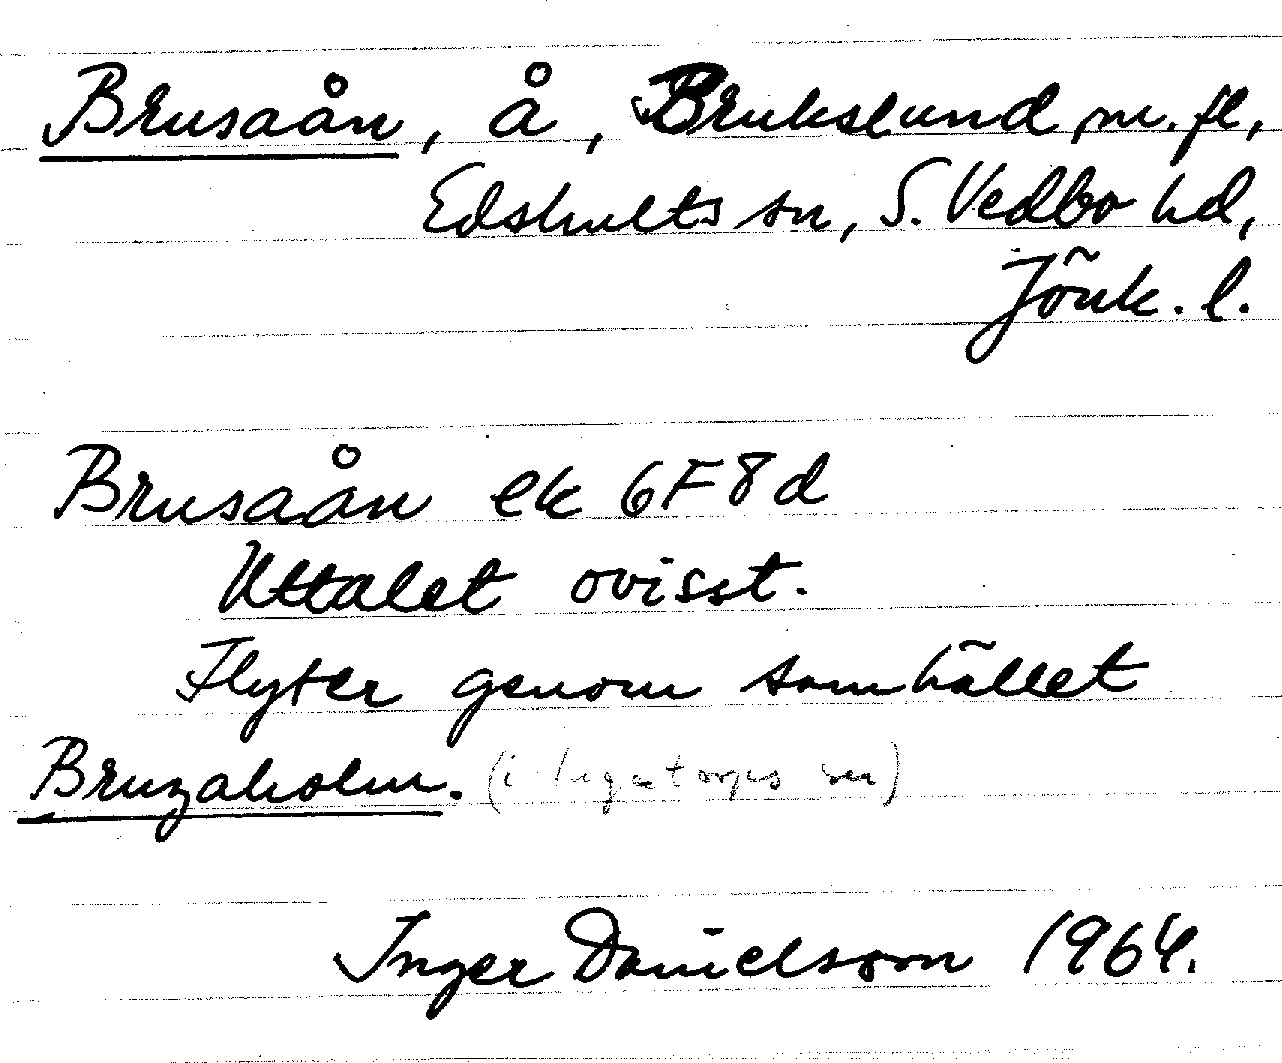 Brusaån, å, Brukslund m.fl,
Edshults sn, S. Vedbo hd,
Jönk. l.
Brusaån ek 6F8d
Uttalet ovisst.
Flyter genom samhället
Bruzaholm. (i Ingatorps sn)
Inger Danielsson 1964.